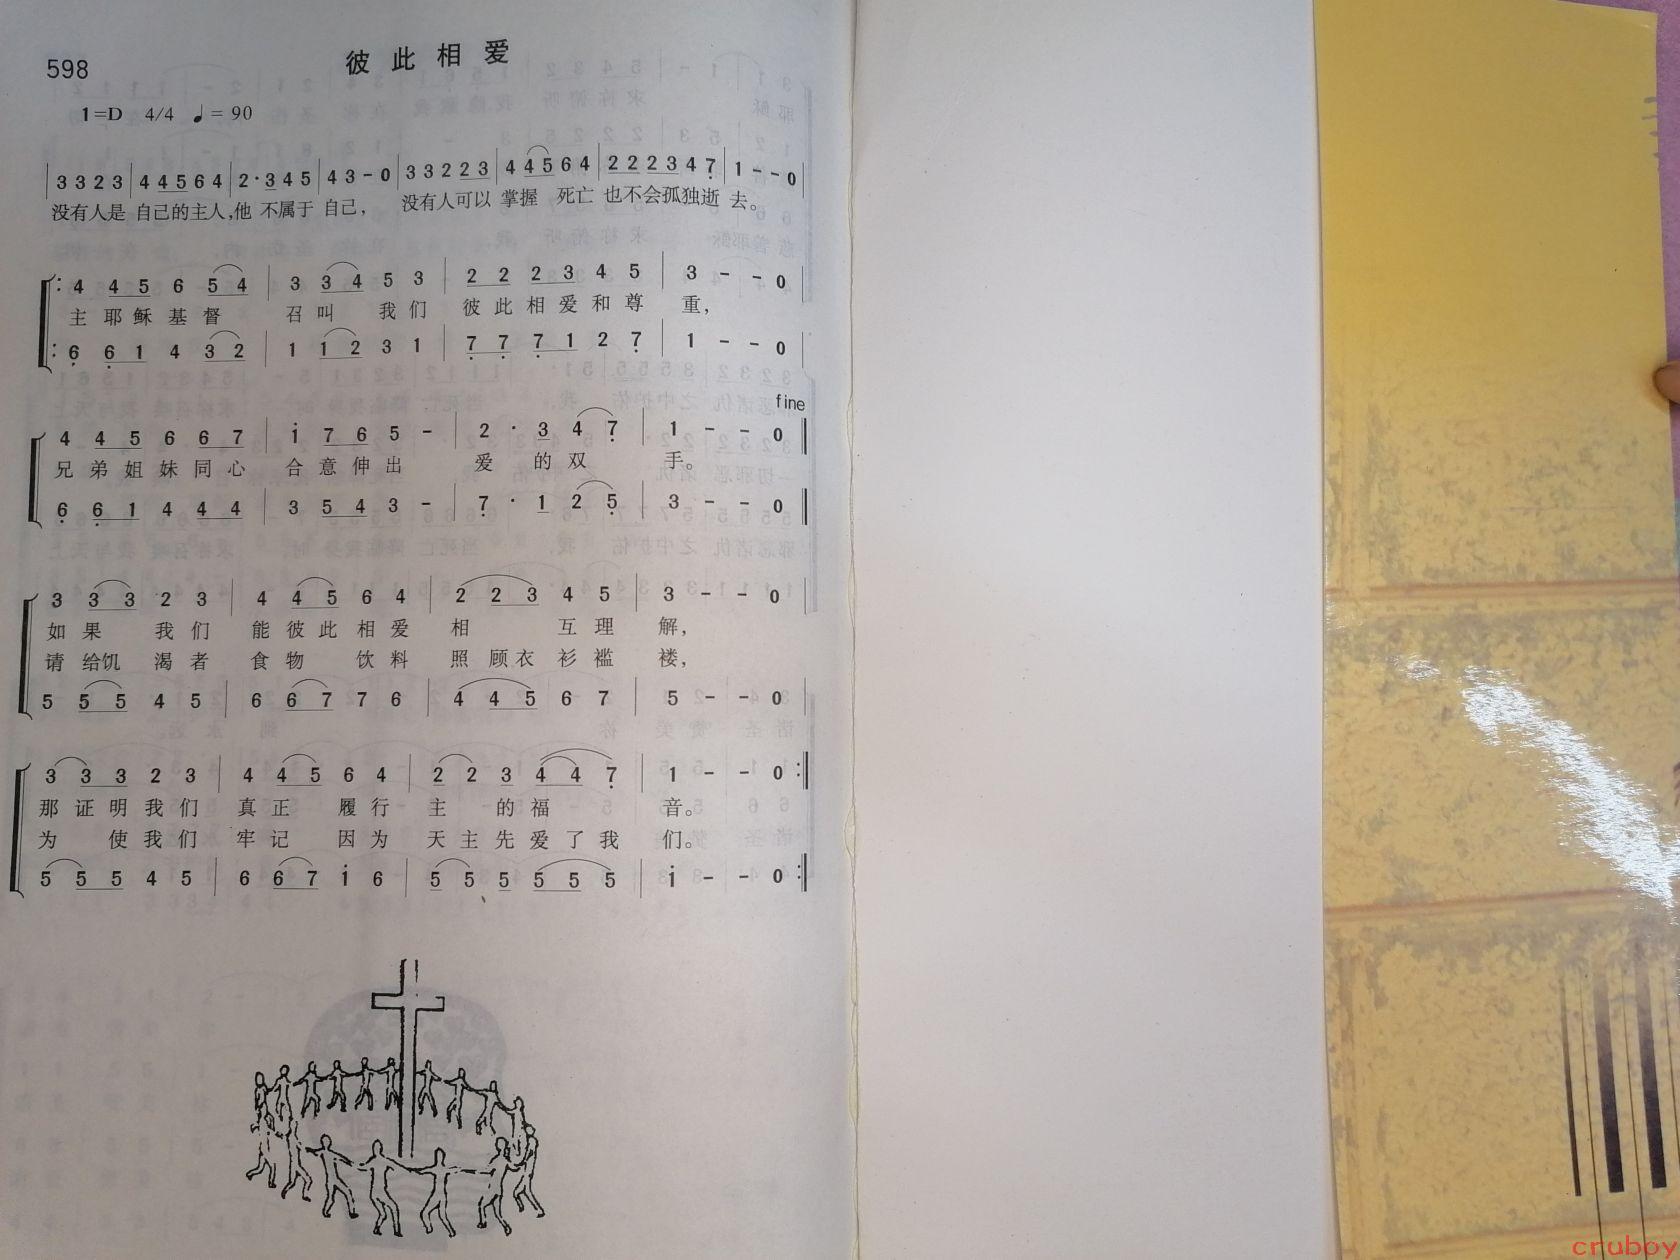 598 彼此相爱
1=D 4/4 ♩=90
| 3 3 2 3 | 4 4 5 6 4 | 2 · 3 4 5 | 4 3 - 0 | 3 3 2 2 3 | 4 4 5 6 4 | 2 2 2 3 4 7̣ | 1 - - 0 |
没有人是 自己的主人,他 不属于 自己, 没有人可以 掌握 死亡 也不会孤独逝 去。
|: 4 4 5 6 5 4 | 3 3 4 5 3 | 2 2 2 3 4 5 | 3 - - 0 |
主耶稣基督 召叫 我们 彼此相爱和尊 重,
|: 6̣ 6̣ 1 4 3 2 | 1 1 2 3 1 | 7̣ 7̣ 7̣ 1 2 7̣ | 1 - - 0 |
fine
4 4 5 6 6 7 | 1̇ 7 6 5 - | 2 · 3 4 7̣ | 1 - - 0 ‖
兄弟姐妹同心 合意伸出 爱 的双 手。
6̣ 6̣ 1 4 4 4 | 3 5 4 3 - | 7̣ · 1 2 5̣ | 3 - - 0 ‖
3 3 3 2 3 | 4 4 5 6 4 | 2 2 3 4 5 | 3 - - 0 |
如果 我们 能彼此相爱 相 互理 解,
请给饥 渴者 食物 饮料 照顾衣衫褴 褛,
5 5 5 4 5 | 6 6 7 7 6 | 4 4 5 6 7 | 5 - - 0 |
3 3 3 2 3 | 4 4 5 6 4 | 2 2 3 4 4 7̣ | 1 - - 0 :‖
那证明我们 真正 履行 主 的福 音。
为 使我们 牢记 因为 天主先爱了我 们。
5 5 5 4 5 | 6 6 7 1̇ 6 | 5 5 5 5 5 5 | 1̇ - - 0 :‖
cruboy